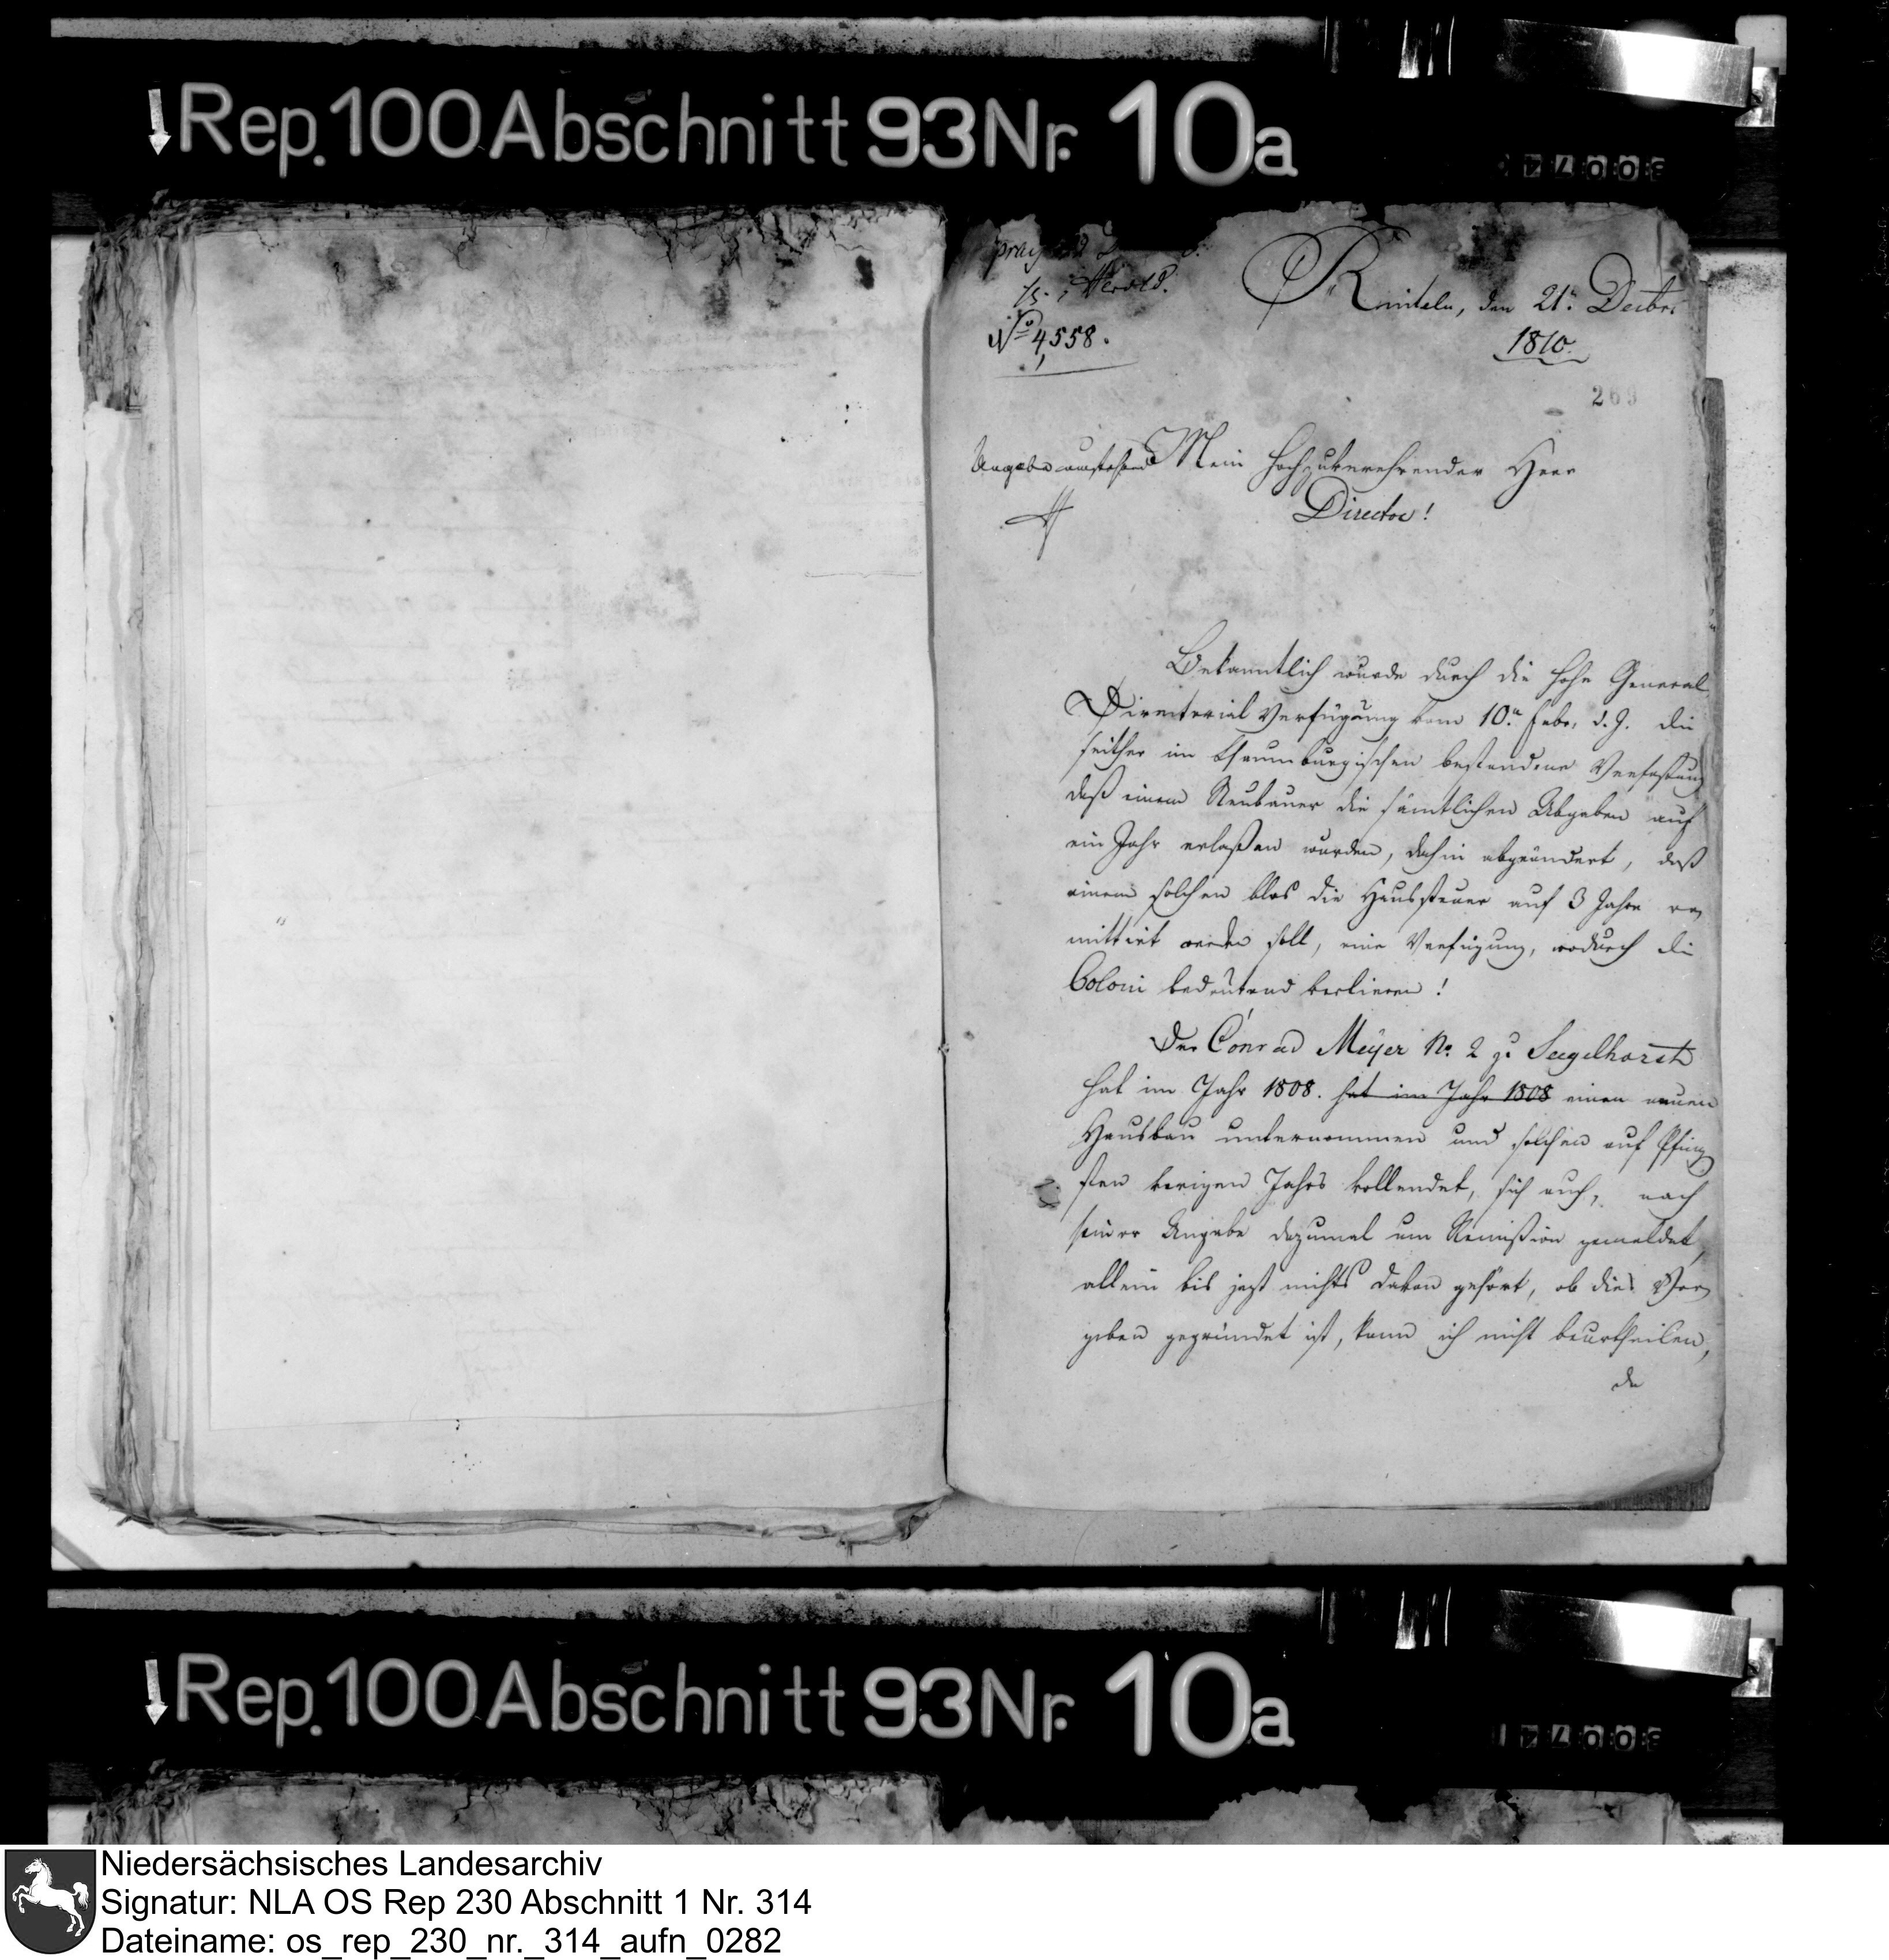 Rep. 100 Abschnitt 93 Nr. 10a
Herold.
No 4558.
Rinteln, den 21n Decbr.
1810.
269
Mein Hochzuverehrender Herr
Director!
Bekanntlich wurde durch die hohe General
Directorial Verfügung vom 10n Febr. d. J. die
seither im Schaumburgischen bestandene Verfaßung
daß einem Neubauer die sämtlichen Abgaben auf
ein Jahr erlaßen wurden, dahin abgeändert, daß
einem solchen blos die Haussteuer auf 3 Jahre re,
mittirt werden soll, eine Verfügung, wodurch die
Coloni bedeutend verlieren!
Der Conrad Meÿer No. 2 zu Segelhorst
hat im Jahr 1808. hat im Jahr 1808 einen neuen
Hausbau unternommen und solchen auf Pfing
sten vorigen Jahrs vollendet, sich auch, nach
seiner Angabe dazumal um Remißion gemeldet,
allein bis jezt nichts davon gehört, ob dies Vor
geben gegründet ist, kann ich nicht beurtheilen,
da
Rep. 100 Abschnitt 93 Nr. 10a
Niedersächsisches Landesarchiv
Signatur: NLA OS Rep 230 Abschnitt 1 Nr. 314
Dateiname: os_rep_230_nr._314_aufn_0282